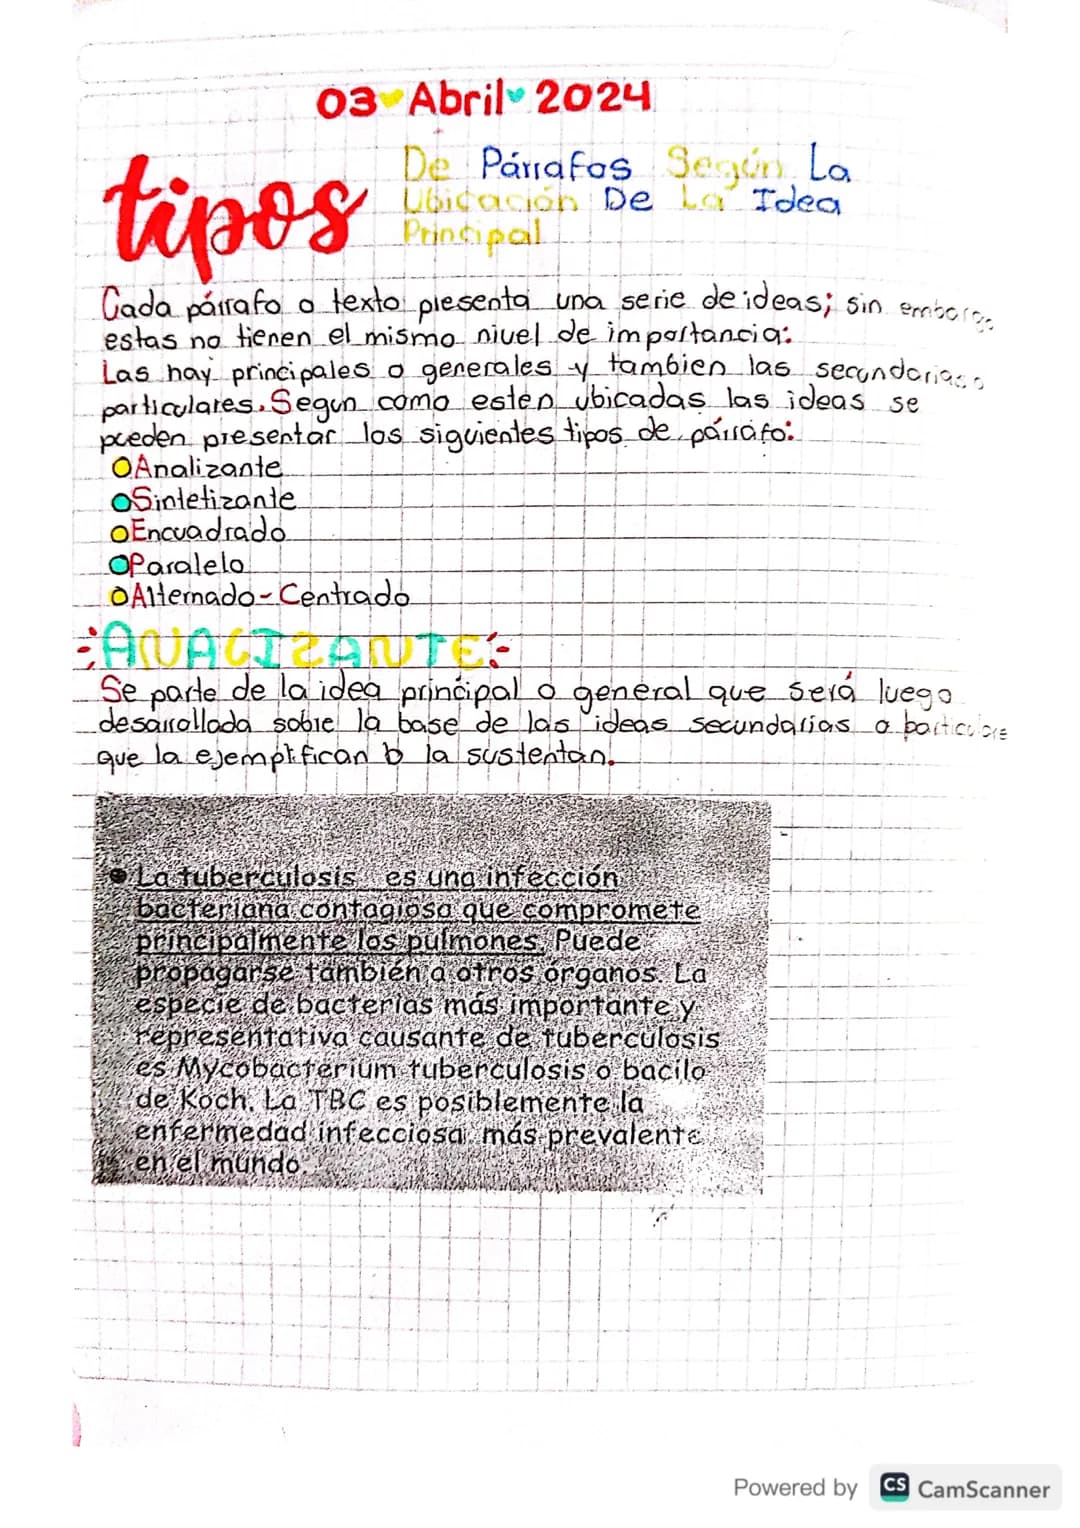 03 Abril 2024
tipos De Párrafos Según La
Ubicación De La Idea
Principal
Cada párrafo o texto presenta una serie de ideas; sin embargo
estas no tienen el mismo nivel de importancia:
Las hay principales o generales y tambien las secundarias o
particulares. Segun como estén ubicadas las ideas se
pueden presentar los siguientes tipos de párrafo:
Analizante
Sintetizante
Encuadrado
Paralelo
Alternado-Centrado
ANALIZANTE
Se parte de la idea principal o general que será luego
desarrollada sobre la base de las ideas secundarias o
que la ejemplifican o la sustentan.
• La tuberculosis es una infección
bacteriana contagiosa que compromete
principalmente los pulmones. Puede
propagarse también a otros órganos. La
especie de bacterias más importante y
representativa causante de tuberculosis
es Mycobacterium tuberculosis o bacilo
de Koch. La TBC es posiblemente la
enfermedad infecciosa más prevalente
en el mundo.
Powered by CS CamScanner